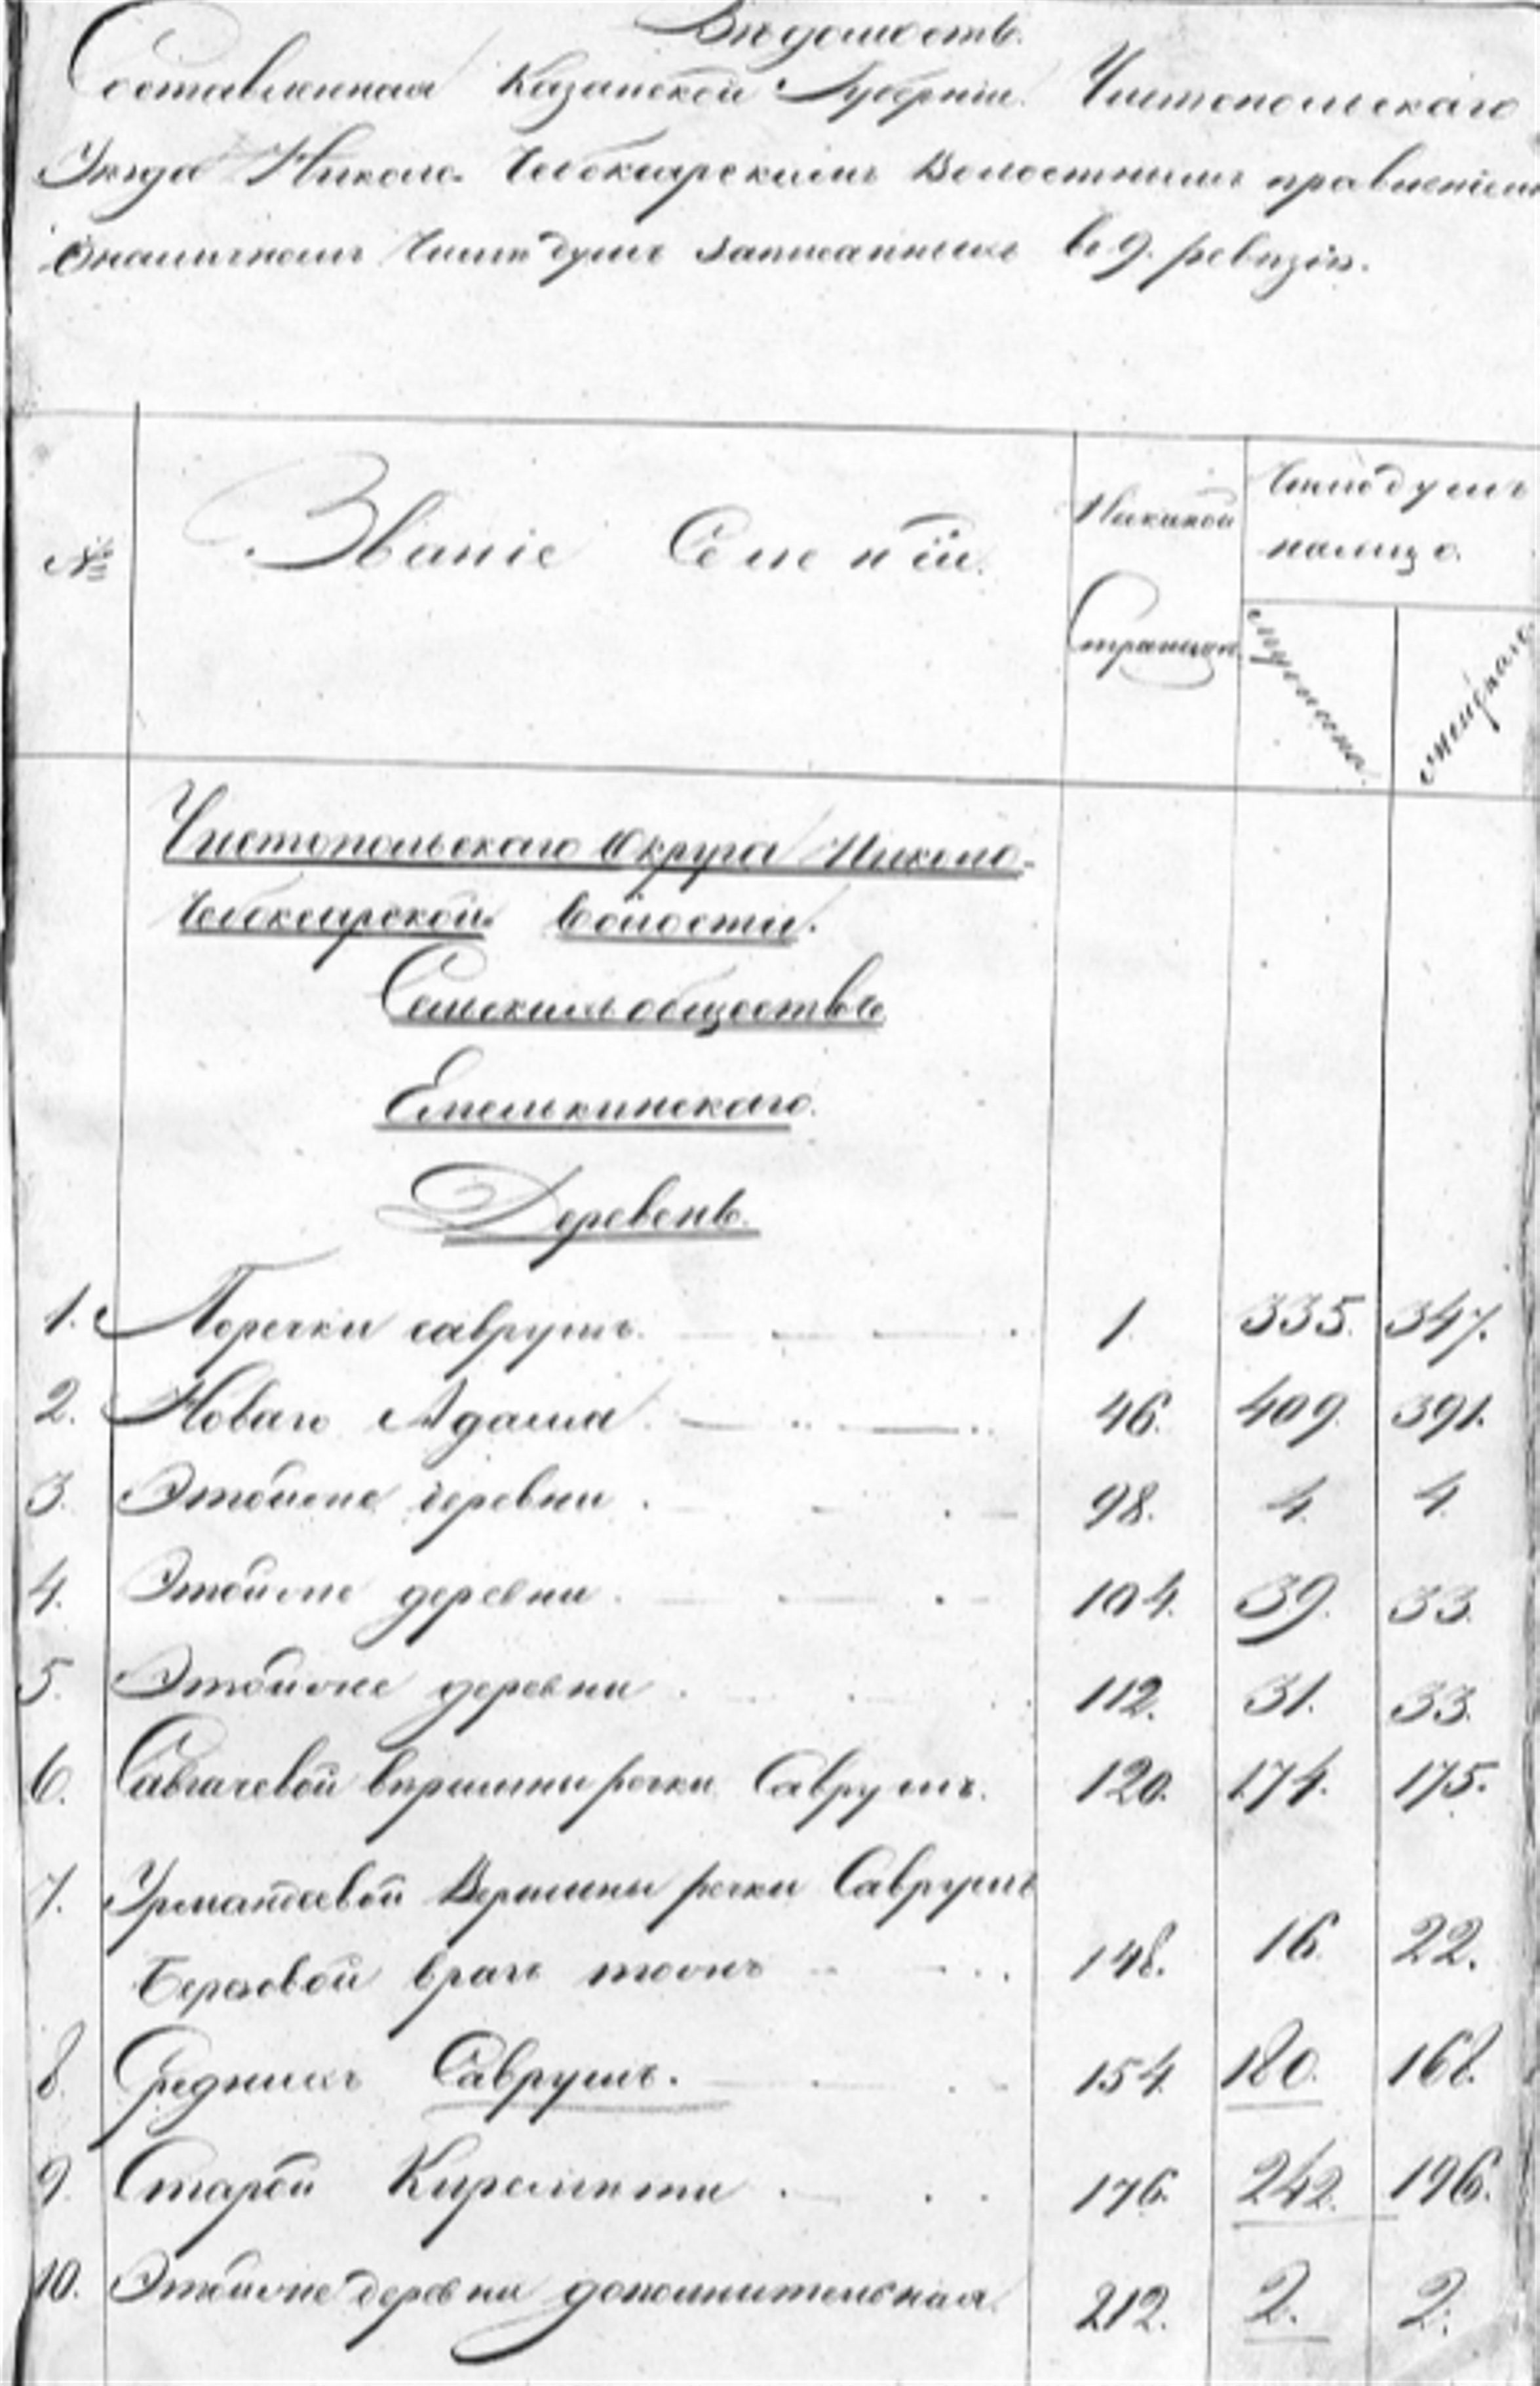 Вѣдомость.
Составленная Казанской Губерніи. Чистопольскаго
Уѣзда Николо- Чебоксарскимъ Волостнымъ правленіемъ
Оналичномъ Числѣ душъ записанныхъ въ 9. ревизію.
№ Званіе Селеній. На какой Страницѣ. Число душъ налицо.
мужеска женскаго
Чистопольскаго Округа Николо-
Чебоксарской волости.
Сельскихъ обществъ
Емелькинскаго.
Деревень.
1. По речки саврушъ. 1 335. 347.
2. Новаго Адама. 46. 409. 391.
3. Этойже деревни. 98. 4. 4.
4. Этойже деревни. 104. 39. 33.
5. Этойже деревни. 112. 31. 33.
6. Савгачевой вершины речки Саврушъ. 120. 174. 175.
7. Урмандеевой Вершины речки Саврушъ
Березовой врагъ тожъ 148. 16. 22.
8. Среднихъ Саврушъ. 154. 180. 168.
9. Старой Киремети. 176. 242. 196.
10. Этойже деревни дополнительная. 212. 2. 2.